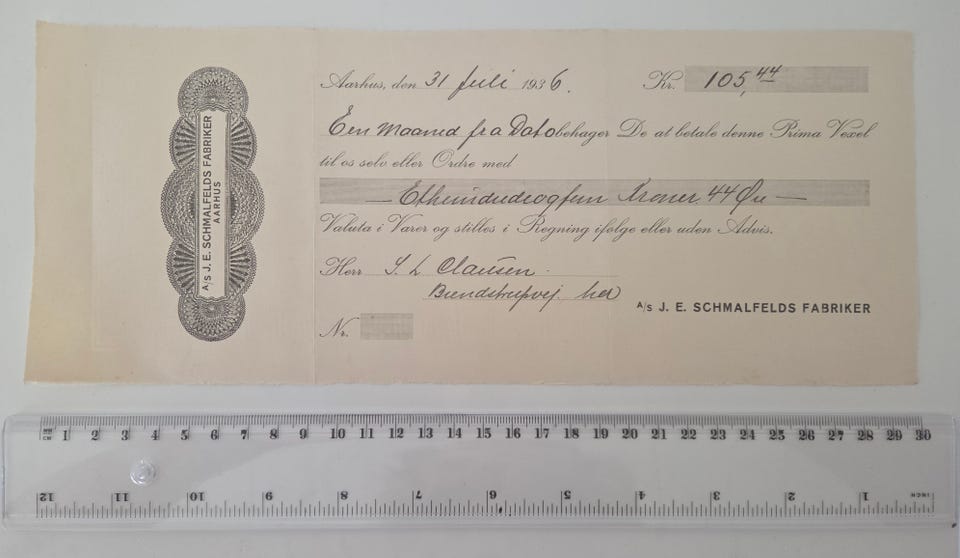 A/S J. E. SCHMALFELDS FABRIKER
AARHUS
Aarhus, den 31 Juli 1936.
Kr. 105,44
Een Maaned fra Dato behager De at betale denne Prima Vexel
til os selv eller Ordre med
— Ethundredeogfem Kroner 44 Øre —
Valuta i Varer og stilles i Regning ifølge eller uden Advis.
Herr S. L Clausen.
Brendstrupvej her
A/S J. E. SCHMALFELDS FABRIKER
Nr.
MM
CM 1 2 3 4 5 6 7 8 9 10 11 12 13 14 15 16 17 18 19 20 21 22 23 24 25 26 27 28 29 30
12 11 10 9 8 7 6 5 4 3 2 1 INCH